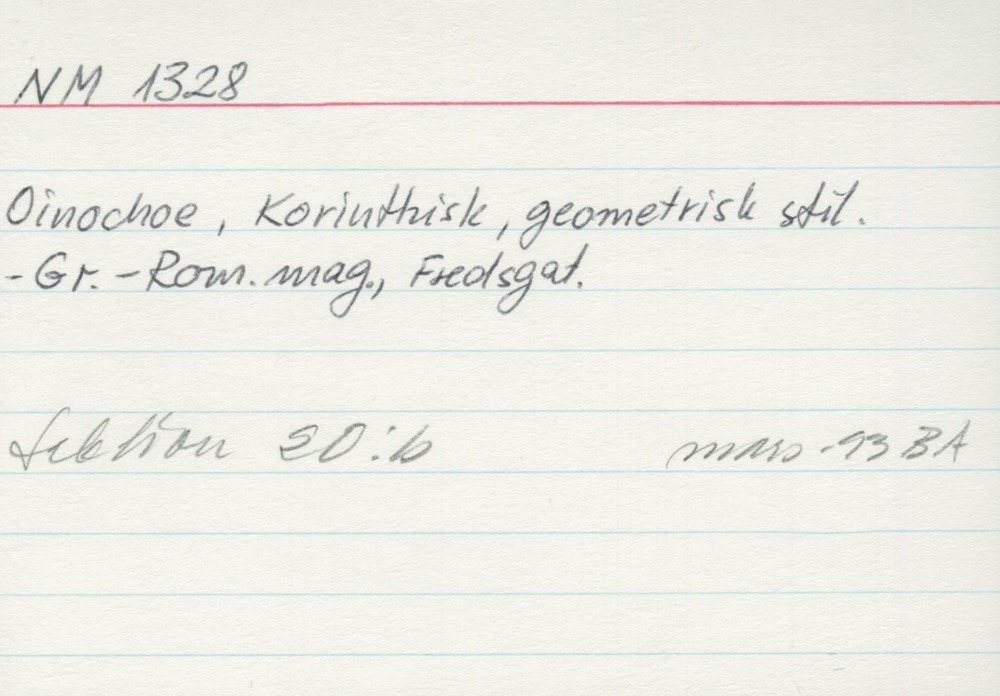 NM 1328
Oinochoe, Korinthisk, geometrisk stil.
- Gr. - Rom. mag., Fredsgat.
Sektion 20:b mars -93 BA